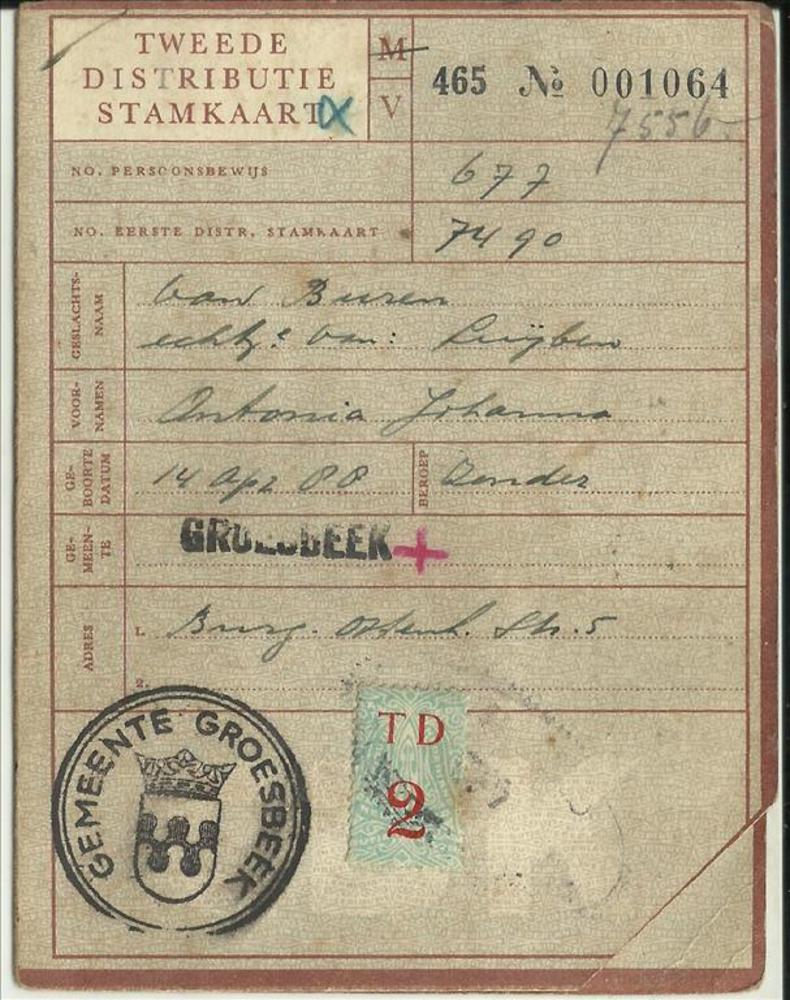 TWEEDE
DISTRIBUTIE
STAMKAART
M
V
465 № 001064
7556
NO. PERSOONSBEWIJS 677
NO. EERSTE DISTR. STAMKAART 7490
GESLACHTS-
NAAM
van Buren
echtg.e van: Luijben
VOOR-
NAMEN
Antonia Johanna
GE-
BOORTE
DATUM
14 Apr 88
BEROEP
Zonder
GE-
MEEN-
TE
GROESBEEK +
ADRES
1. Burg. Ottenh. Str. 5
2.
GEMEENTE GROESBEEK
TD
2